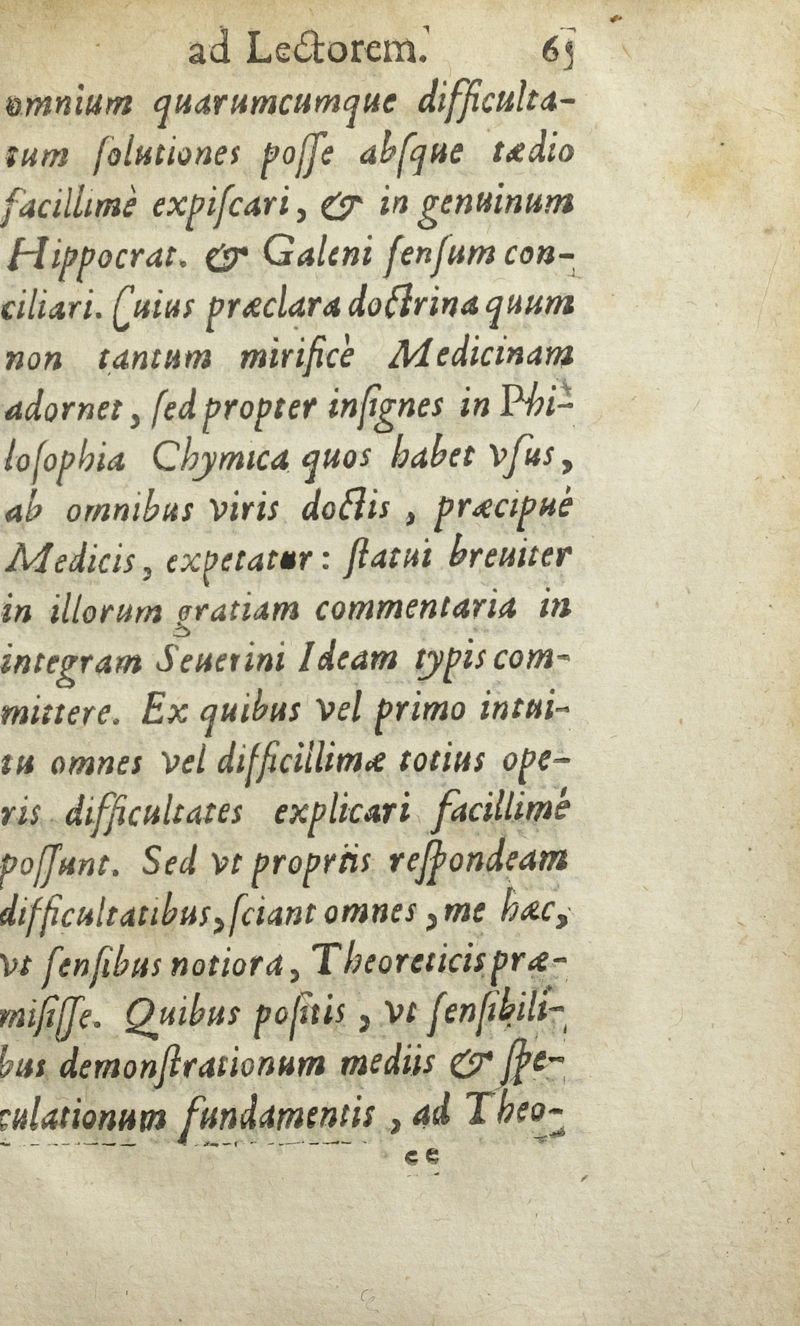 ad Lectorem. 65
omnium quarumcumque difficulta-
tum ſolutiones poſſe abſque tædio
facillimè expiſcari, & in genuinum
Hippocrat. & Galeni ſenſum con-
ciliari. Cuius præclara doctrina quum
non tantum mirificè Medicinam
adornet, ſed propter inſignes in Phi-
loſophia Chymica quos habet vſus,
ab omnibus viris doctis, præcipuè
Medicis, expetatur: ſtatui breuiter
in illorum gratiam commentaria in
integram Seuerini Ideam typis com-
mittere. Ex quibus vel primo intui-
tu omnes vel difficillimæ totius ope-
ris difficultates explicari facillimè
poſſunt. Sed vt propriis reſpondeam
difficultatibus, ſciant omnes, me hæc,
vt ſenſibus notiora, Theoreticis præ-
miſiſſe. Quibus poſitis, vt ſenſibili-
bus demonſtrationum mediis & ſpe-
culationum fundamentis, ad Theo-
ee